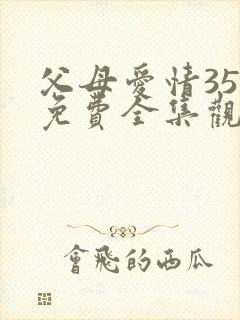 父母愛情35
免費全集觀
會飛的西瓜